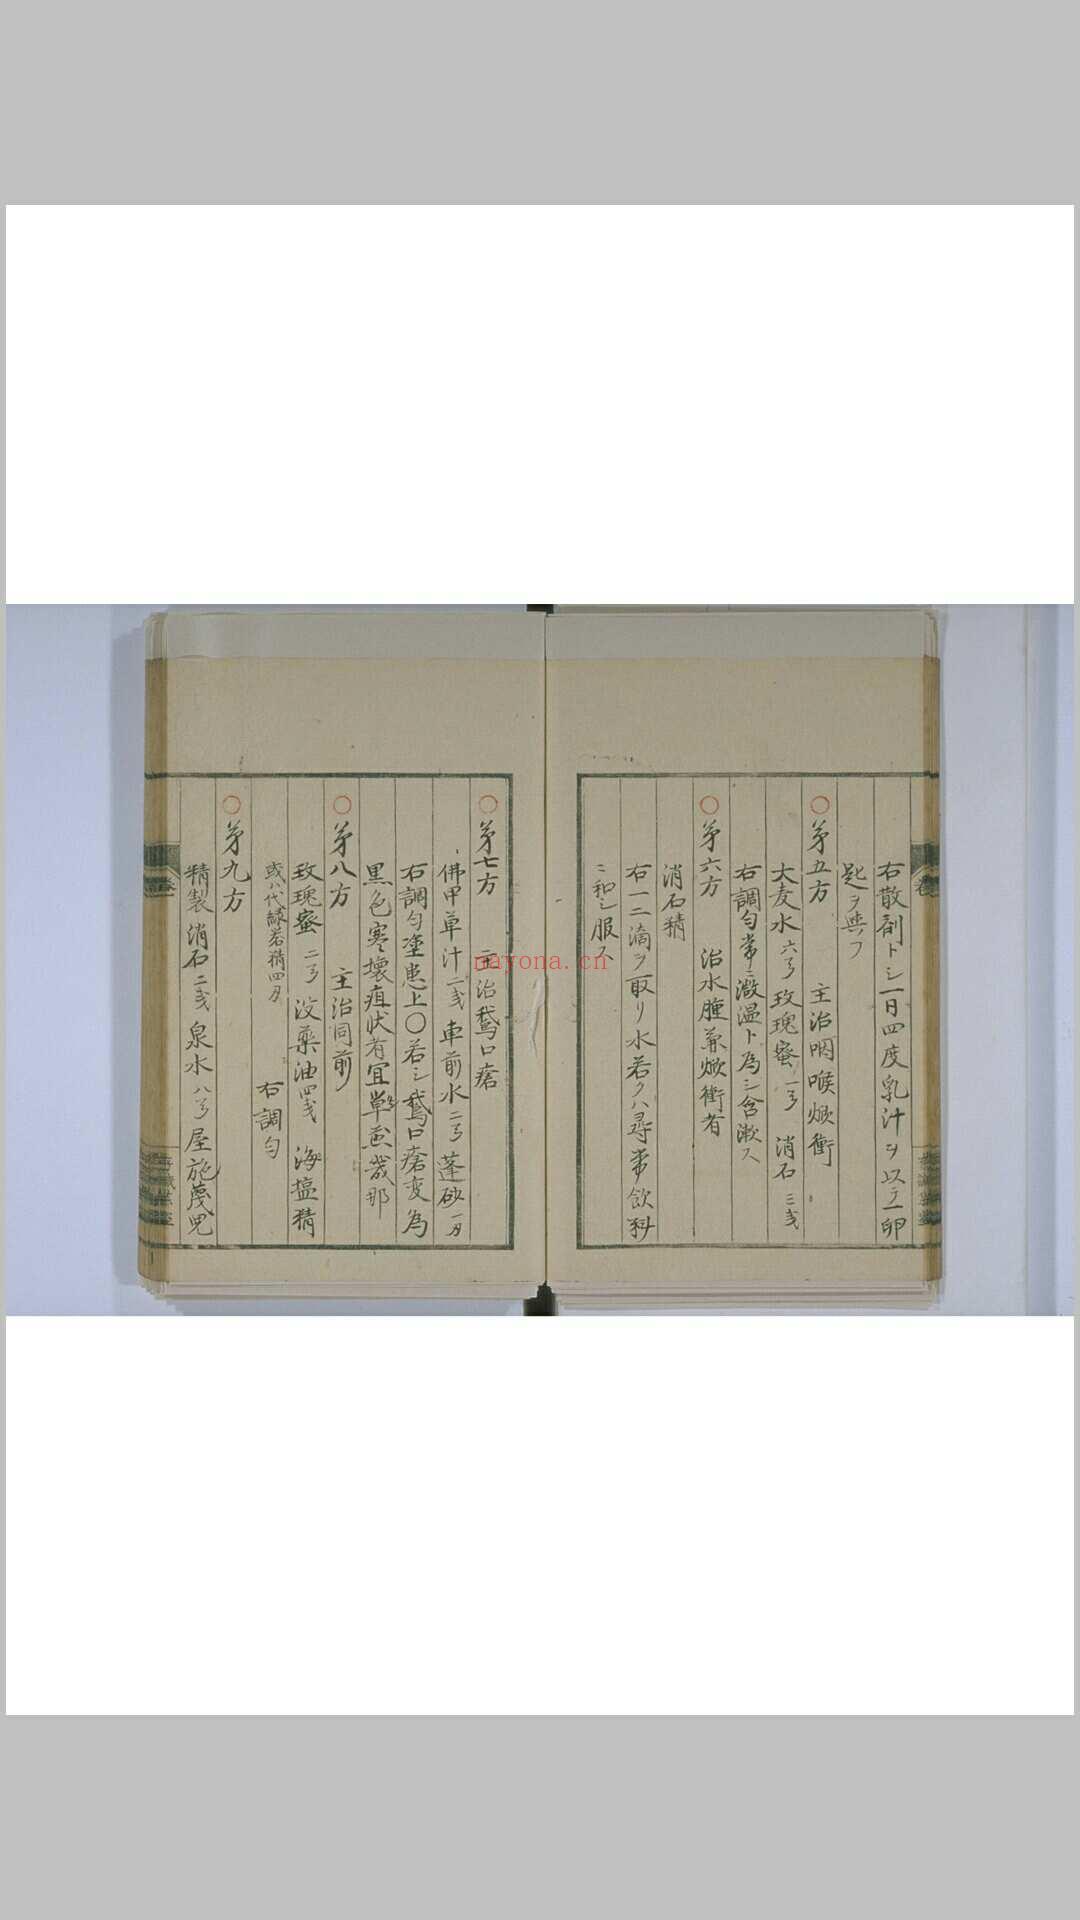 右散剤トシ一日四度乳汁ヲ以テ卯
匙ヲ與フ
○第五方 主治咽喉焮衝
大麦水 六 玫瑰蜜 一 消石 三
右調匀常ニ微温ト為シ含漱ス
○第六方 治水腫兼焮衝者
消石精
右一二滴ヲ取リ水若クハ尋常飲料
ニ和シ服ス
○第七方 主治鵞口瘡
佛甲草汁 二 車前水 二 蓬砂 一
右調匀塗患上○若シ鵞口瘡変為
黒色寒壊疽状者宜
○第八方 主治同前
玫瑰蜜 二 没薬油 四 海塩精
或ハ代緑若精四
右調匀
○第九方
精製消石 二 泉水 八 屋施蔑児
卷
nayona.cn